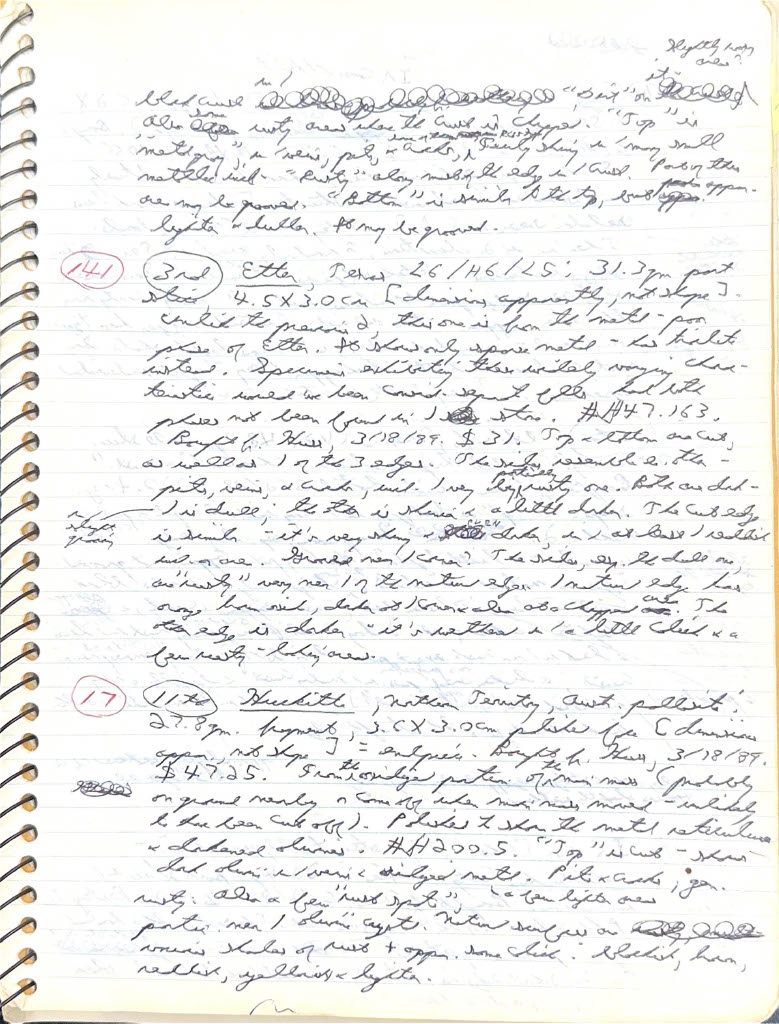 Slightly
area?
it
in /
black crust "Dirt" on
some
also rusty areas where the crust is chipped. "Top" is
"metal gray", w/ veins, pits, & cracks, many small
metallic incl. "Rusty" along most of the edge w/ crust. Part of this
are may be grooved. "Bottom" is similar to the top, but
lighter & duller. It may be grooved.
141 3rd Etter, Texas L6/H6/L5; 31.3 gm part
slice, 4.5 X 3.0 cm [dimensions apparently, not shape].
Unlike the previous 2, this one is from the metal-poor
phase of Etter. It shows only sparse metal - has troilite
instead. Specimens exhibiting these widely varying charac-
teristics would've been consid. separate falls, had both
phases not been found in 1 stone. #H47.163.
Bought fr. Huss, 3/18/89. $31. Top & bottom are cut,
as well as 1 of the 3 edges. The sides resemble ea. other -
pits, veins, & cracks, incl. 1 very rusty one. Both are dark -
slight
1 is dull; the other is shinier & a little darker. The cut edge
is similar - it's very shiny & EVEN darker, w/ at least 1 reddish
incl. or area. Grooved near 1 corner? The sides, esp. the dull one,
are "rusty" very near 1 of the natural edges. 1 natural edge has
orange, brown, darker at 1 corner & also at a chipped area. The
other edge is darker - it's weathered w/ a little & a
few rusty-looking areas.
17 11th Huckitta, Northern Territory, Aust. pallasite;
27.8 gm. fragment, 3.6 X 3.0 cm polished face [dimensions
appar., not shape] = endpiece. Bought fr. Huss, 3/18/89.
$47.25. From the oxidized portion of the main mass (probably
on ground nearby or came off when main mass moved - unlikely
to have been cut off). Polished to show the metal reticulum
& darkened olivine. #H200.5. "Top" is cut - shows
dark olivine w/ veins & oxidized metal. Pits & cracks, gen.
rusty; also a few "rust spots", & a few lighter areas
partic. near 1 olivine cryst. Natural surfaces are
various shades of rust + appar. some - blackish, brown,
reddish, yellowish & lighter.